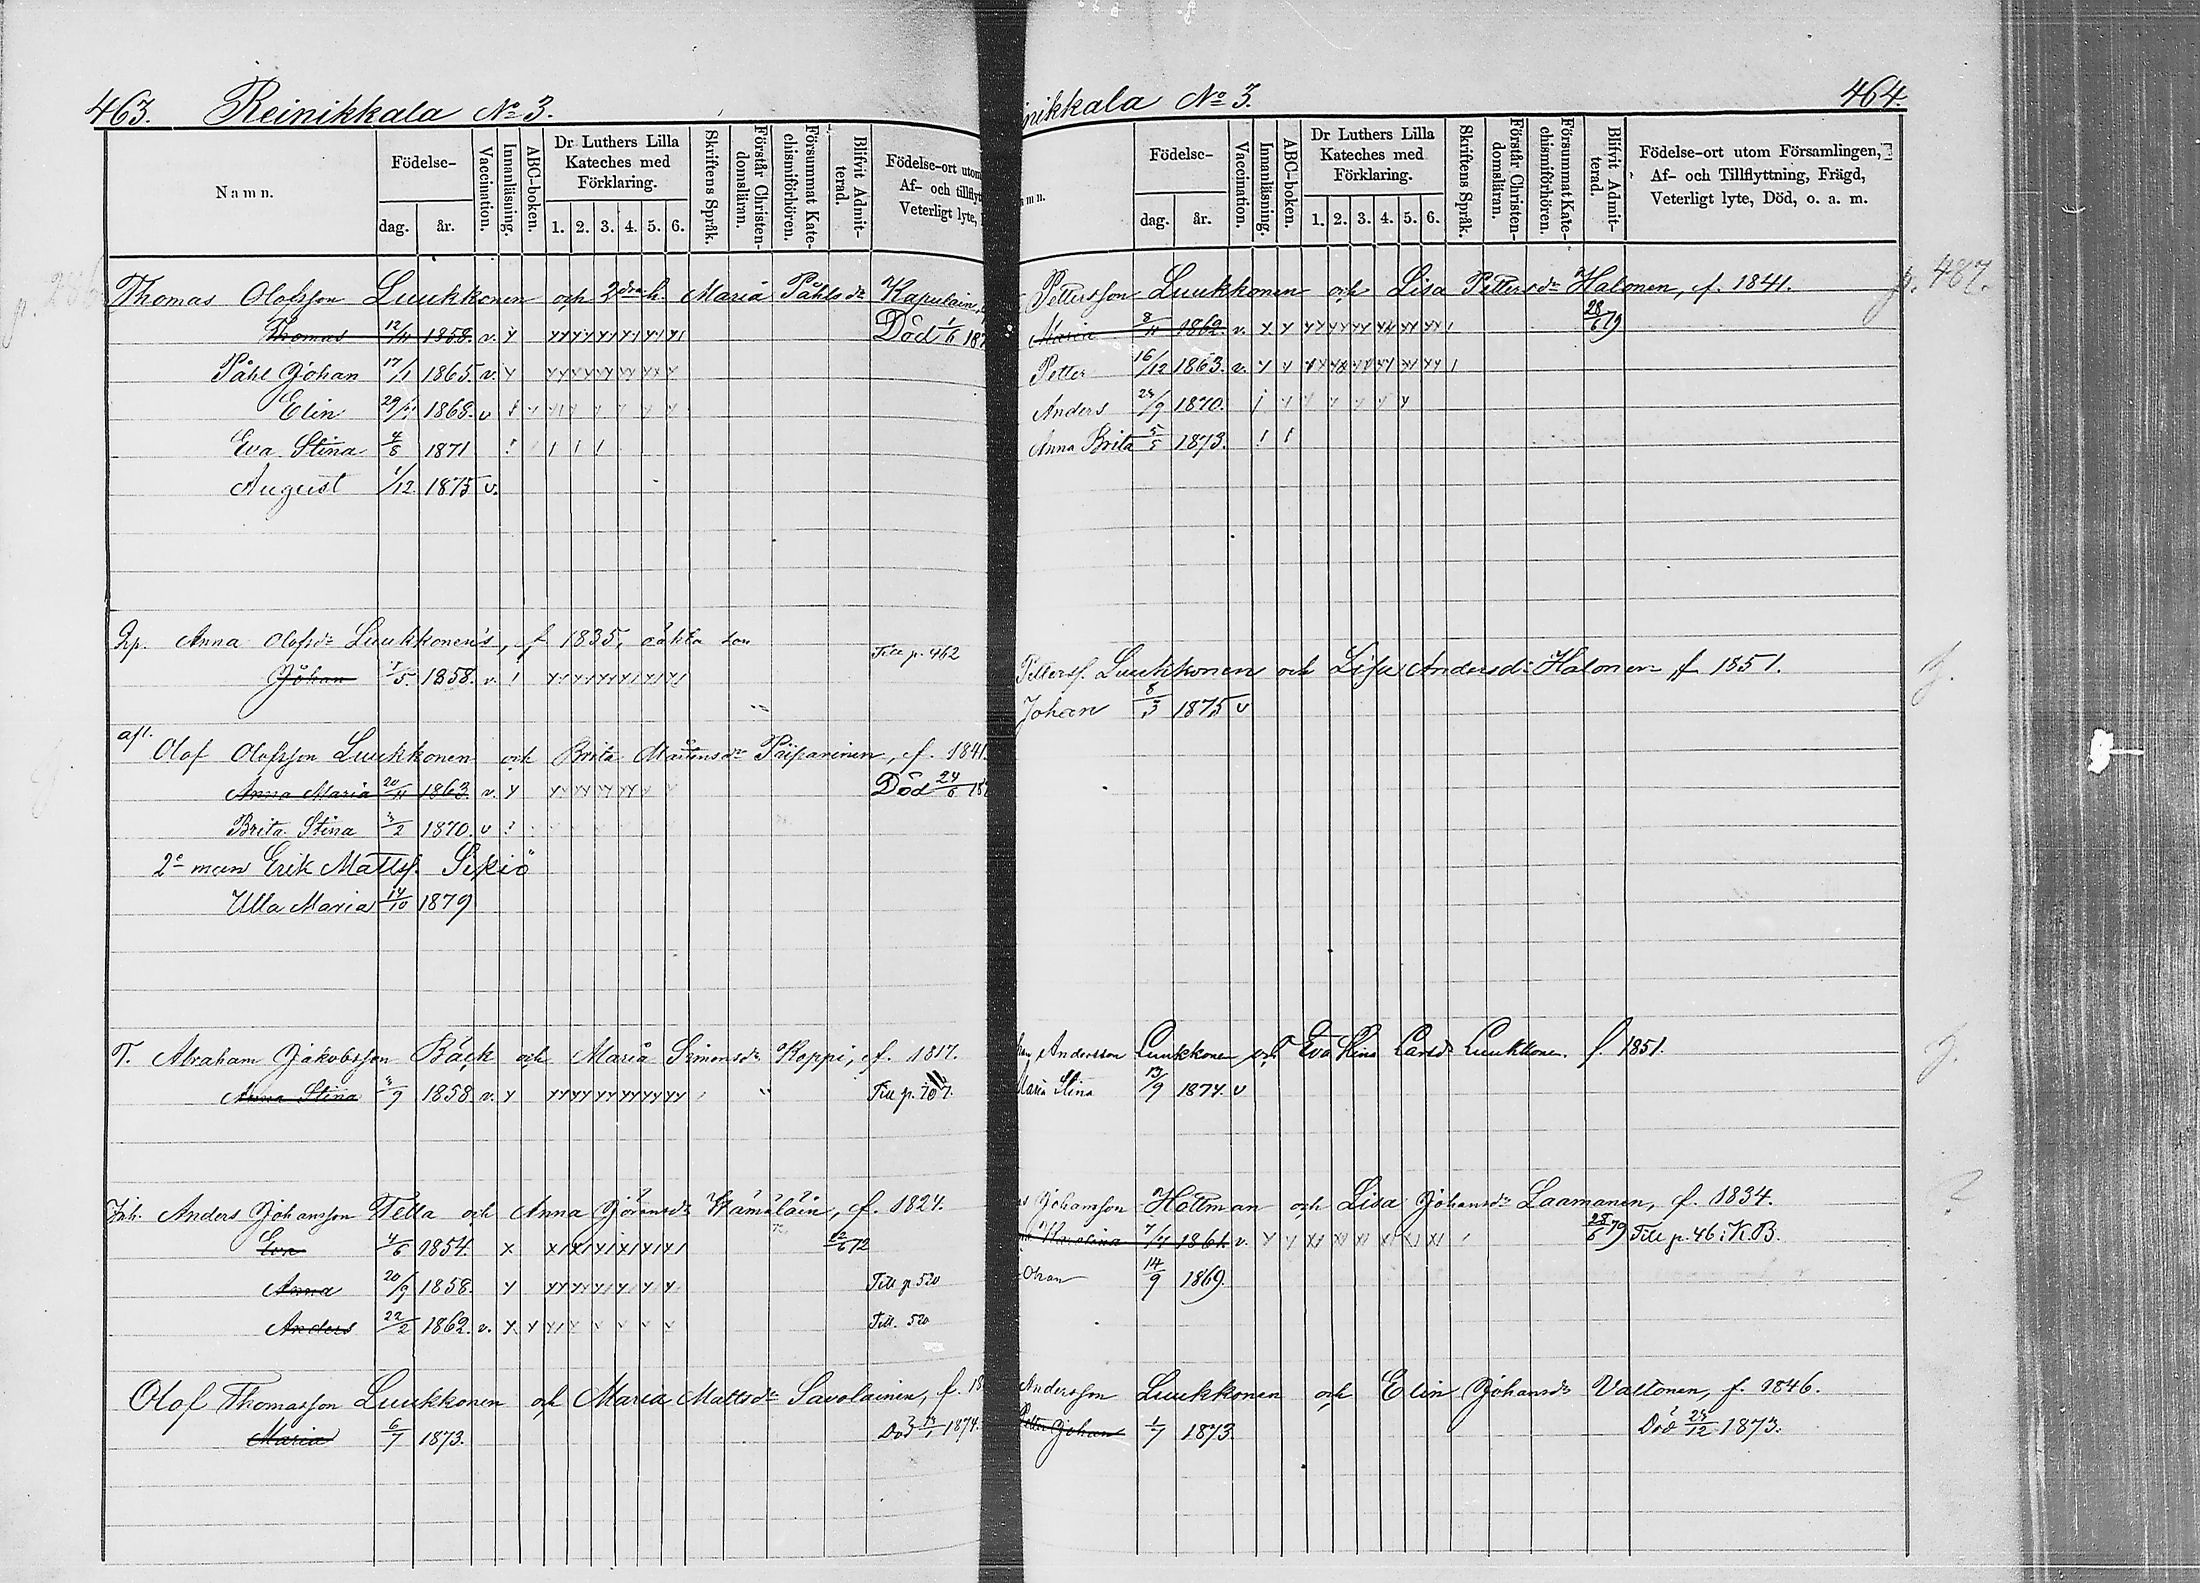 463. Reinikkala No 3.
Namn. Födelse- dag. år. Vaccination. Innanläsning. ABC-boken. Dr Luthers Lilla Kateches med Förklaring. 1. 2. 3. 4. 5. 6. Skriftens Språk. Förstår Christendomsläran. Försummat Katechismiförhören. Blifvit Admitterad. Födelse-ort utom Af- och tillflyt Veterligt lyte,
Thomas Olofsson Luukkonen och 2dra h. Maria Påhlsdr Kapulain
Thomas 12/4 1858. v. Död 1/6 187
Påhl Johan 17/1 1865. v.
Elin 29/ 1868. v
Eva Stina 4/8 1871
August 1/12 1875 v.
Anna Olofsdr Luukkonen's, f 1835, oäkta son Till p. 462
Johan /5. 1858. v.
Olof Olofsson Luukkonen och Brita Mårtensdr Piiparinen, f. 1841.
Anna Maria 20/11 1863. v. Död 24/6
Brita Stina 3/2 1870. v
2e man Erik Matts. Sikiö
Ulla Maria 14/10 1879
T. Abraham Jakobsson Bäck och Maria Simonsdr Koppi, f. 1817.
Anna Stina /9 1858 v. Till p.
Inh. Anders Johansson Tella och Anna Göransdr Hämäläin, f. 1824.
Eva 4/6 1854. 12/6 72
Anna 20/9 1858. Till p 520
Anders 22/2 1862. v. Till. 520
Olof Thomasson Luukkonen och Maria Mattsdr Savolainen, f. 18
Maria 6/7 1873. Död 1874.
nikkala No 3. 464.
mn. Födelse- dag. år. Vaccination. Innanläsning. ABC-boken. Dr Luthers Lilla Kateches med Förklaring. 1. 2. 3. 4. 5. 6. Skriftens Språk. Förstår Christendomsläran. Försummat Katechismiförhören. Blifvit Admitterad. Födelse-ort utom Församlingen, Af- och Tillflyttning, Frägd, Veterligt lyte, Död, o. a. m.
Pettersson Luukkonen och Lisa Pettersdr Halonen, f. 1841. p. 487.
Maria 8/11 1862. v. 28/6 79
Petter 16/12 1863. v.
Anders 24/9 1870.
Anna Brita 5/5 1873.
Petters. Luukkonen och Lisa Andersdr Halonen f 1851.
Johan 8/3 1875 v
Andersson Luukkonen och Eva Stina Larsdr Luukkonen f. 1851.
Maria Stina 13/9 1874. v
Johansson Hottman och Lisa Johansdr Laamanen, f. 1834.
Karolina 7/4 1861. v. 28/6 79 Till p. 46 i K.B.
ohan 14/9 1869.
Andersson Luukkonen och Elin Johansdr Valtonen, f. 1846.
Petter Johan 1/7 1873. Död 23/12 1873.